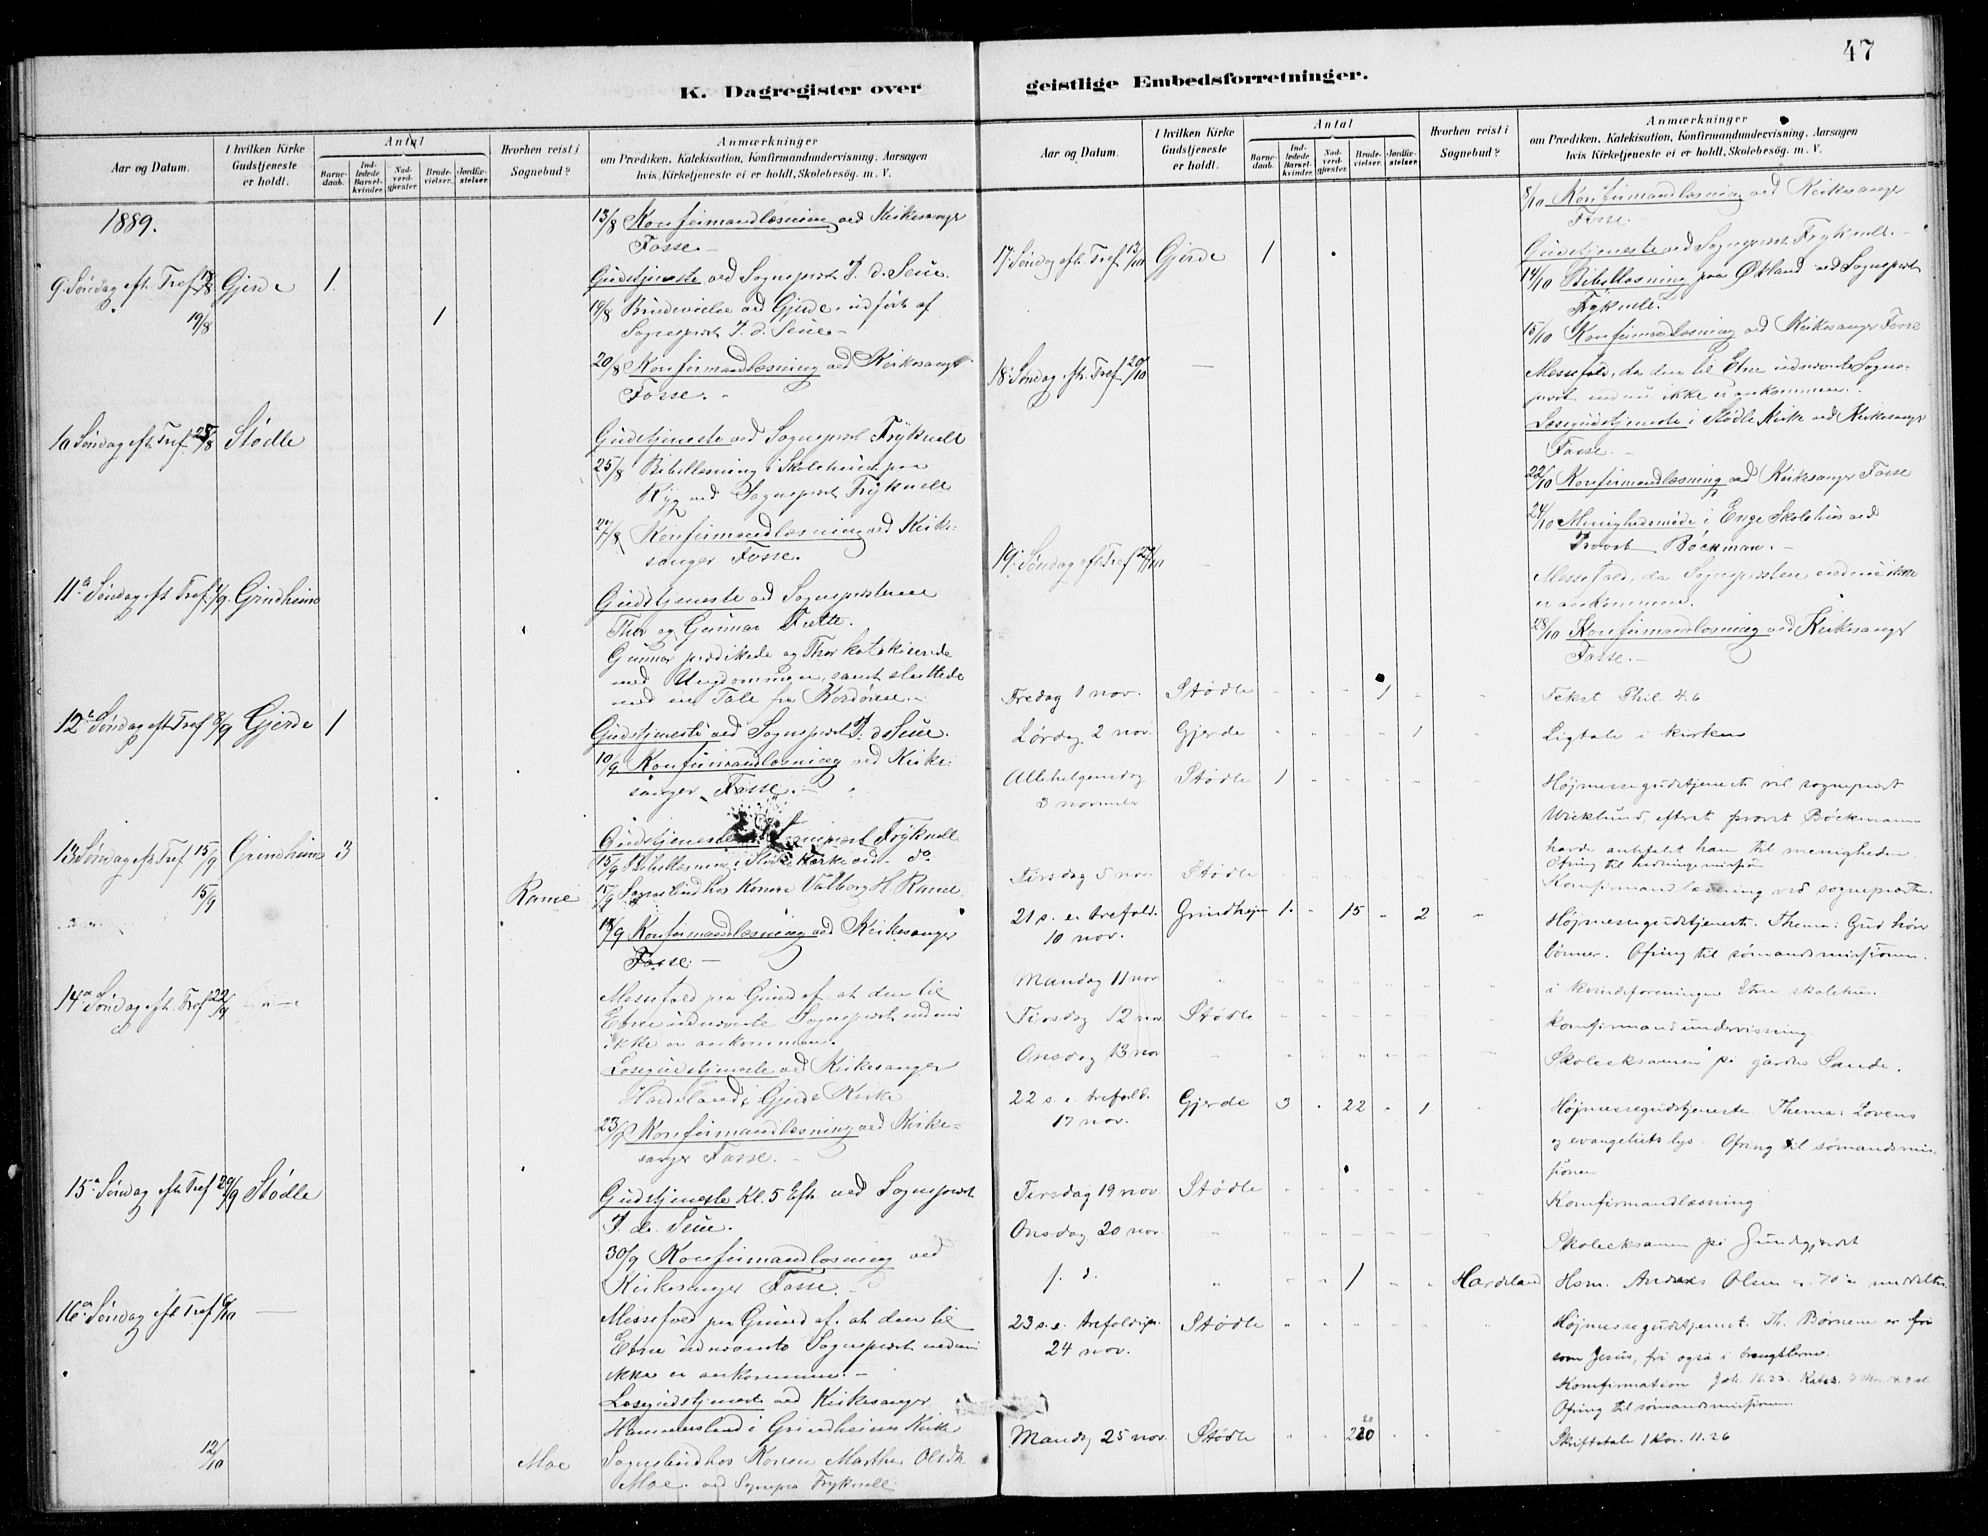 47
K. Dagregister over
geistlige Embedsforretninger.
Aar og Datum.
I hvilken Kirke Gudstjeneste er holdt.
Antal
Barne-daab.
Ind-ledede Barsel-kvinder.
Nad-verd-gjæster.
Brude-vielser.
Jordfæ-stelser.
Hvorhen reist i Sognebud?
Anmærkninger
om Prædiken, Katekisation, Konfirmandundervisning, Aarsagen
hvis Kirketjeneste ei er holdt, Skolebesög. m. V.
1889.
13/8 Konfirmandlæsning ved Kirkesanger
Fosse.-
9. Søndag eft. Tref. 18/8 Gjerde 1. Gudstjeneste ved Sogneprst J. d. Seue.
19/8 1 19/8 Brudevielse ved Gjerde, udført af
Sogneprst J. d. Seue.-
20/8 Konfirmandlæsning ved Kirkesanger
Fosse.-
10 Søndag eft. Tref. 25/8 Stødle Gudstjeneste ved Sogneprst Fryknell
25/8 Bibellæsning i Skolehuset paa
Ryg ved Sogneprst Fryknell
27/8 Konfirmandlæsning ved Kirke-
sanger Fosse.
11a Søndag eft. Tref. 1/9. Grindheim Gudstjeneste ved Sogneprsterne
Thor og Gunnar Trette.
Gunnar prædikede og Thor katekiserede
med Ungdommen, samt sluttede
med en Tale fra Kordøren.-
12a Søndag eft. Tref. 8/9 Gjerde 1 Gudstjeneste ved Sogneprst J. d Seue.
10/9 Konfirmandlæsning ved Kirke-
sanger Fosse.-
13 Søndag eft. Tref 15/9 Grindheim 3 Gudstjeneste ved Sogneprst Fryknell
15/9 Bibellæsning i Stødle Kirke ved do
15/9 Rame 15/9 Sognebud hos Konen Valborg H. Rame
18/9 Konfirmandlæsning ved Kirkesanger
Fosse.-
14a Søndag eft. Tref. 22/9 Messefald paa Grund af, at den til
Etne udnævnte Sogneprst endnu
ikke er ankommen.
Læsegudstjeneste ved Kirkesanger
Hardeland i Gjerde Kirke
23/9 Konfirmandlæsning ved Kirke-
sanger Fosse.-
15a Søndag eft. Tref 29/9 Stødle Gudstjeneste Kl. 5 Eft. ved Sogneprst
J. de. Seue.
30/9 Konfirmandlæsning ved
Kirkesanger Fosse.-
16a Søndag eft Tref 6/10 Messefald paa Grund af, at den til
Etne udnævnte Sogneprst endnu
ikke er ankommen.-
Læsegudstjeneste ved Kirkesanger
Hammersland i Grindheims Kirke
12/10 Moe Sognebud hos Konen Marthe Olsdtr
Moe. ved Sognepr Fryknell.
Aar og Datum.
I hvilken Kirke Gudstjeneste er holdt.
Antal
Barne-daab.
Ind-ledede Barsel-kvinder.
Nad-verd-gjæster.
Brude-vielser.
Jordfæ-stelser.
Hvorhen reist i Sognebud?
Anmærkninger
om Prædiken, Katekisation, Konfirmandundervisning, Aarsagen
hvis Kirketjeneste ei er holdt, Skolebesög. m. V.
8/10 Konfirmandlæsning ved Kirkesanger
Fosse.
17. Søndag eft. Tref 13/10 Gjerde 1 Gudstjeneste ved Sogneprst Fryknell.-
14/10 Bibellæsning paa Økland ved Sogneprst
Fryknell.
15/10 Konfirmandlæsning ved Kirkesanger Fosse
18. Søndag eft. Tref 20/10 — Messefald, da den til Etne udnævnte Sogne-
prst endnu ikke er ankommen.
Læsegudstjeneste i Stødle Kirke ved Kirkesanger
Fosse.-
22/10 Konfirmandlæsning ved Kirkesanger Fosse
24/10 Menighedsmøde i Enge Skolehus ved
Provst Böckman.-
19. Søndag eft. Tref 27/10 Messefald, da Sogneprsten endnu ikke
er ankommen.
28/10 Konfirmandlæsning ved Kirkesanger
Fosse.-
Fredag 1 nov. Stødle 1 Tekst Phil. 4.6
Lørdag 2 nov. Gjerde 1 Ligtale i kirken
Allehelgensdag Stødle 1 Højmessegudstjeneste ved sogneprest
3 november Wicklund, efterat provst Böckmann
havde anbefalet ham til menigheden
Ofring til hedningemissjon
Tirsdag 5 nov. Stødle Konfirmandlæsning ved sogneprsten
21 s. e. trefold. Grindhejm 1. 15 2 Højmessegudstjenest. Thema: Gud hører
10 nov. bønner. Ofring til sømandsmissjonen.
Mandag 11 nov i kvindeforeningen Etne skolehus.
Tirsdag 12 nov Stødle Konfirmandundervisning.
Onsdag 13 nov Skoleeksamen på garden Sande.
22 s. e. trefold. Gjerde 3 22 1 Højmessegudstjeneste. Thema: Lovens
17 nov. og evangeliets lys. Ofring til sømandsmis-
sjonen
Tirsdag 19 nov. Stødle Konfirmandlæsning
Onsdag 20 nov. Skoleeksamen på
s. d. 1 Hardeland Hsm. Anders Olsen
23 s. e. trefoldigh. Stødle Højmessegudstjenest. Th. Børnene er fri
24 nov. som Jesus, fri også i trængslerne.
Konfirmation. Joh. 16.23.
Ofring til sømandsmissjonen.
Mandag 25 nov. Stødle 20 Skriftetale 1 Kor. 11.26